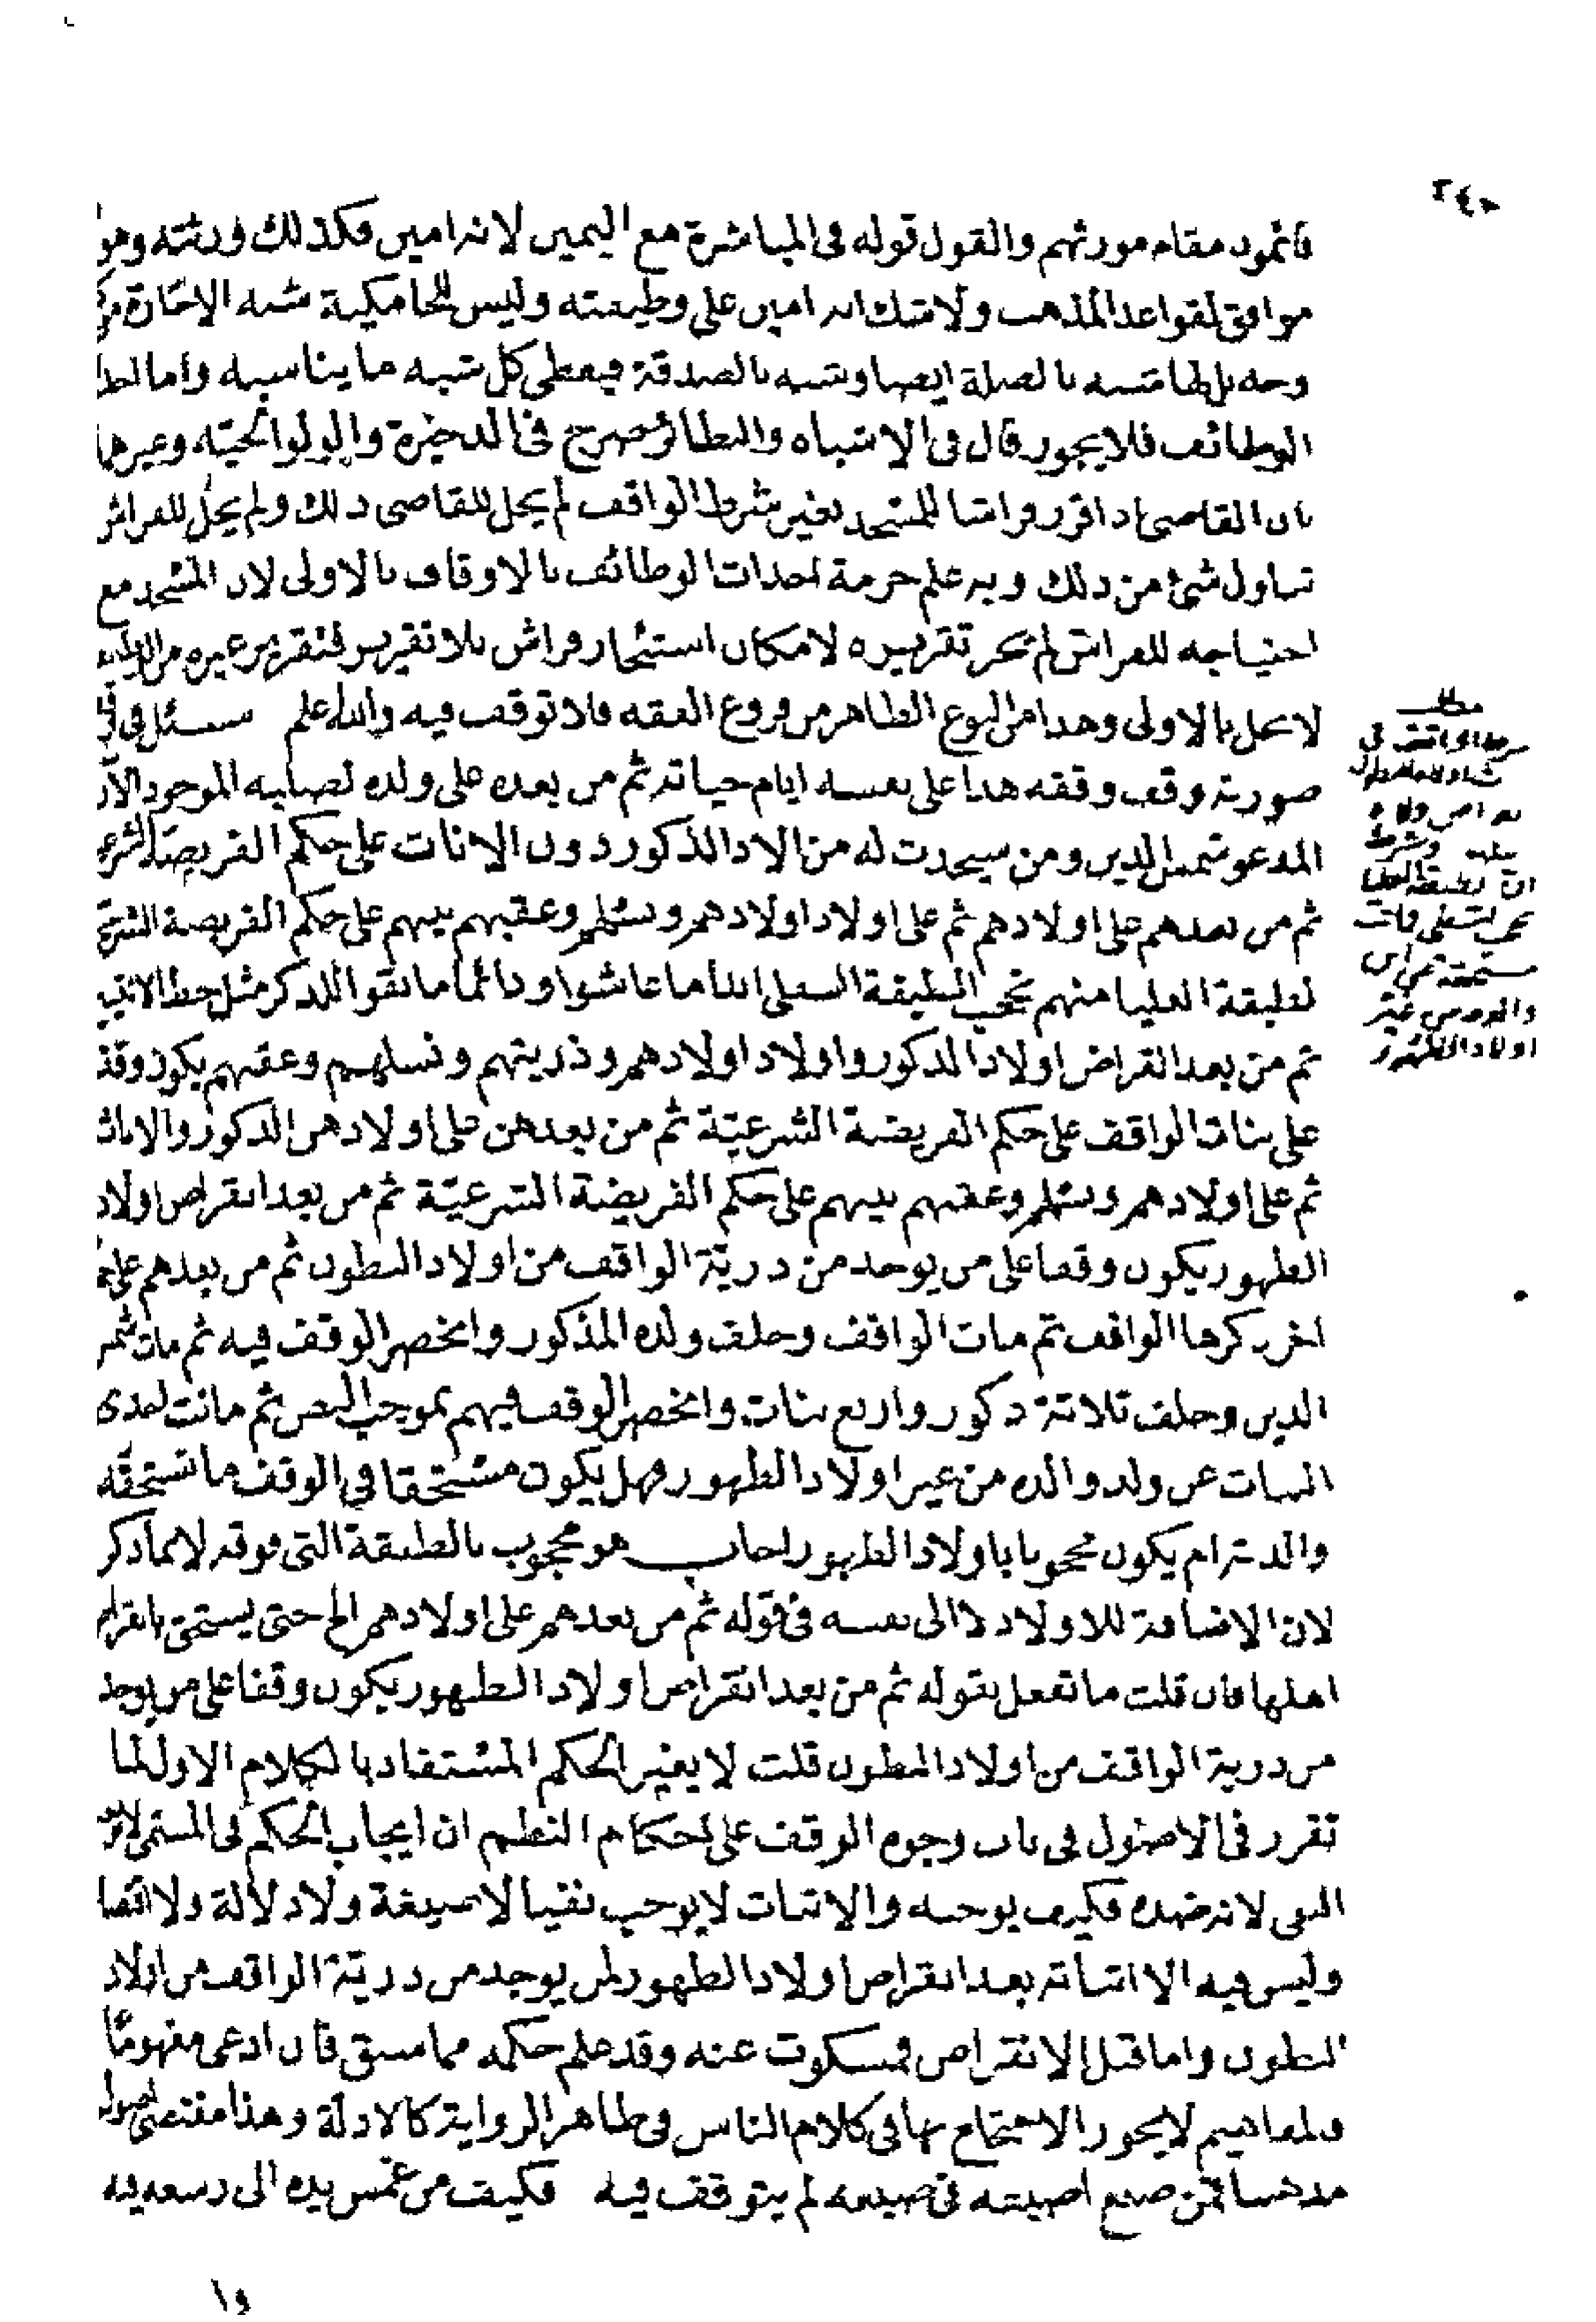 ٢٤٠
قائمون مقام مورثهم والقول قوله في المباشرة مع اليمين لانه امين فكذلك ورثته وهو
موافق لقواعد المذهب ولا شك انه امين على وظيفته وليس للجامكية شبه الاجارة من كل
وجه بل لها شبه بالصلة ايضا وشبه بالصدقة فيعطى كل شبه ما يناسبه واما
الوظائف فلا يجوز قال في الاشباه والنظائر صرح في الذخيرة والولوالجية وغيرها
بان القاضي اذا قرر فراشا للمسجد بغير شرط الواقف لم يحل للقاضي ذلك ولم يحل للفراش
تناول شئ من ذلك وبه علم حرمة احداث الوظائف بالاوقاف بالاولى لان المسجد مع
احتياجه للفراش لم يجز تقريره لامكان استئجار فراش بلا تقرير فتقرير غيره من الوظايف
لا يحل بالاولى وهذا من النوع الظاهر من فروع الفقه فلا توقف فيه والله اعلم سئل في
صورة وقف وقفه هذا على نفسه ايام حياته ثم من بعده على ولده لصلبه الموجود الآن
المدعو شمس الدين ومن سيحدث له من الاولاد الذكور دون الاناث على حكم الفريضة الشرعية
ثم من بعدهم على اولادهم ثم على اولاد اولادهم ونسلهم وعقبهم بينهم على حكم الفريضة الشرعية
الطبقة العليا منهم تحجب الطبقة السفلى ابدا ما عاشوا ودائما ما بقوا للذكر مثل حظ الانثيين
ثم من بعد انقراض اولاد الذكور واولاد اولادهم وذريتهم ونسلهم وعقبهم يكون وقفا
على بنات الواقف على حكم الفريضة الشرعية ثم من بعدهن على اولادهن الذكور والاناث
ثم على اولادهم ونسلهم وعقبهم بينهم على حكم الفريضة الشرعية ثم من بعد انقراض اولاد
الظهور يكون وقفا على من يوجد من ذرية الواقف من اولاد البطون ثم من بعدهم على
اخر ذكرها الواقف ثم مات الواقف وخلف ولده المذكور وانحصر الوقف فيه ثم مات شمس
الدين وخلف ثلاثة ذكور واربع بنات وانحصر الوقف فيهم بموجب النص ثم ماتت احدى
البنات عن ولد والده من غير اولاد الظهور فهل يكون مستحقا في الوقف ما تستحقه
والدته ام يكون محجوبا باولاد الظهور اجاب هو محجوب بالطبقة التي فوقه لا بما ذكر
لان الاضافة للاولاد لا الى نفسه في قوله ثم من بعدهم على اولادهم الخ حتى يستحق بانقراض
اهلها فان قلت ما تفعل بقوله ثم من بعد انقراض اولاد الظهور يكون وقفا على من يوجد
من ذرية الواقف من اولاد البطون قلت لا يغير الحكم المستفاد بالكلام الاول لما
تقرر في الاصول في باب وجوه الوقف على احكام النظم ان ايجاب الحكم في المسمى لا
النفي لانه ضده فكيف يوجبه والاثبات لا يوجب نفيا لا صيغة ولا دلالة ولا اقتضا
وليس فيه الا اثباته بعد انقراض اولاد الظهور لمن يوجد من ذرية الواقف من اولاد
البطون واما قبل الانقراض فمسكوت عنه وقد علم حكمه مما سبق فان ادعى مفهوما
فالمفاهيم لا يجوز الاحتجاج بها في كلام الناس في ظاهر الرواية كالادلة وهذا مقتضى اصول
مذهبنا فمن وضع اصبعه في لم يتوقف فيه فكيف من غمس يده الى رسغه فيه
وا
مطلب
شرط الواقف في
ان الطبقة العليا
تحجب السفلى فماتت
مستحقة عن ابن
والده من غير
اولاد الظهور